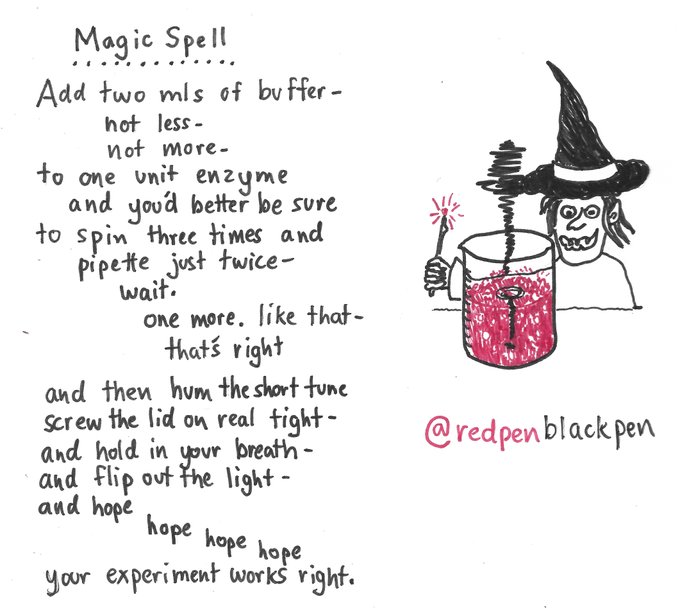 Magic Spell
Add two mls of buffer-
not less-
not more-
to one unit enzyme
and you'd better be sure
to spin three times and
pipette just twice-
wait.
one more. like that-
that's right
and then hum the short tune
screw the lid on real tight-
and hold in your breath-
and flip out the light-
and hope
hope
hope
hope
your experiment works right.
@redpenblackpen